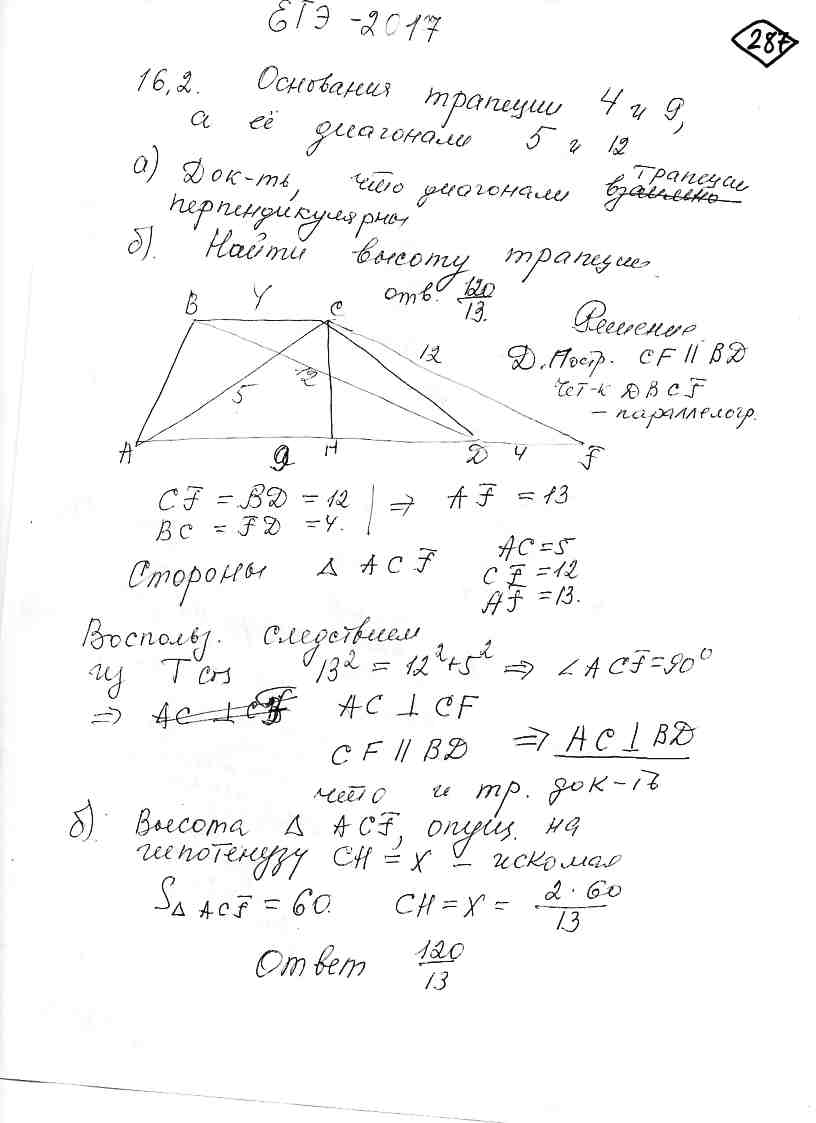 ЕГЭ-2017
287
16,2. Основания трапеции 4 и 9,
а её диагонали 5 и 12
а) Док-ть, что диагонали трапеции
перпендикулярны
б). Найти высоту трапеции.
отв. 120/13.
B 4 C
12
5
12
A 9 H D 4 F
Решение
Д. Постр. CF || BD
Чет-к DBCF
– параллелогр.
CF = BD = 12 | ⇒ AF = 13
BC = FD = 4.
Стороны Δ ACF
AC = 5
CF = 12
AF = 13.
Воспольз. следствием
из Т cos 13² = 12² + 5² ⇒ ∠ACF = 90°
⇒ AC ⊥ CF
CF || BD ⇒ AC ⊥ BD
что и тр. док-ть
б) Высота Δ ACF, опущ. на
гипотенузу CH = x – искомая
S Δ ACF = 60. CH = x = 2·60/13
Ответ 120/13